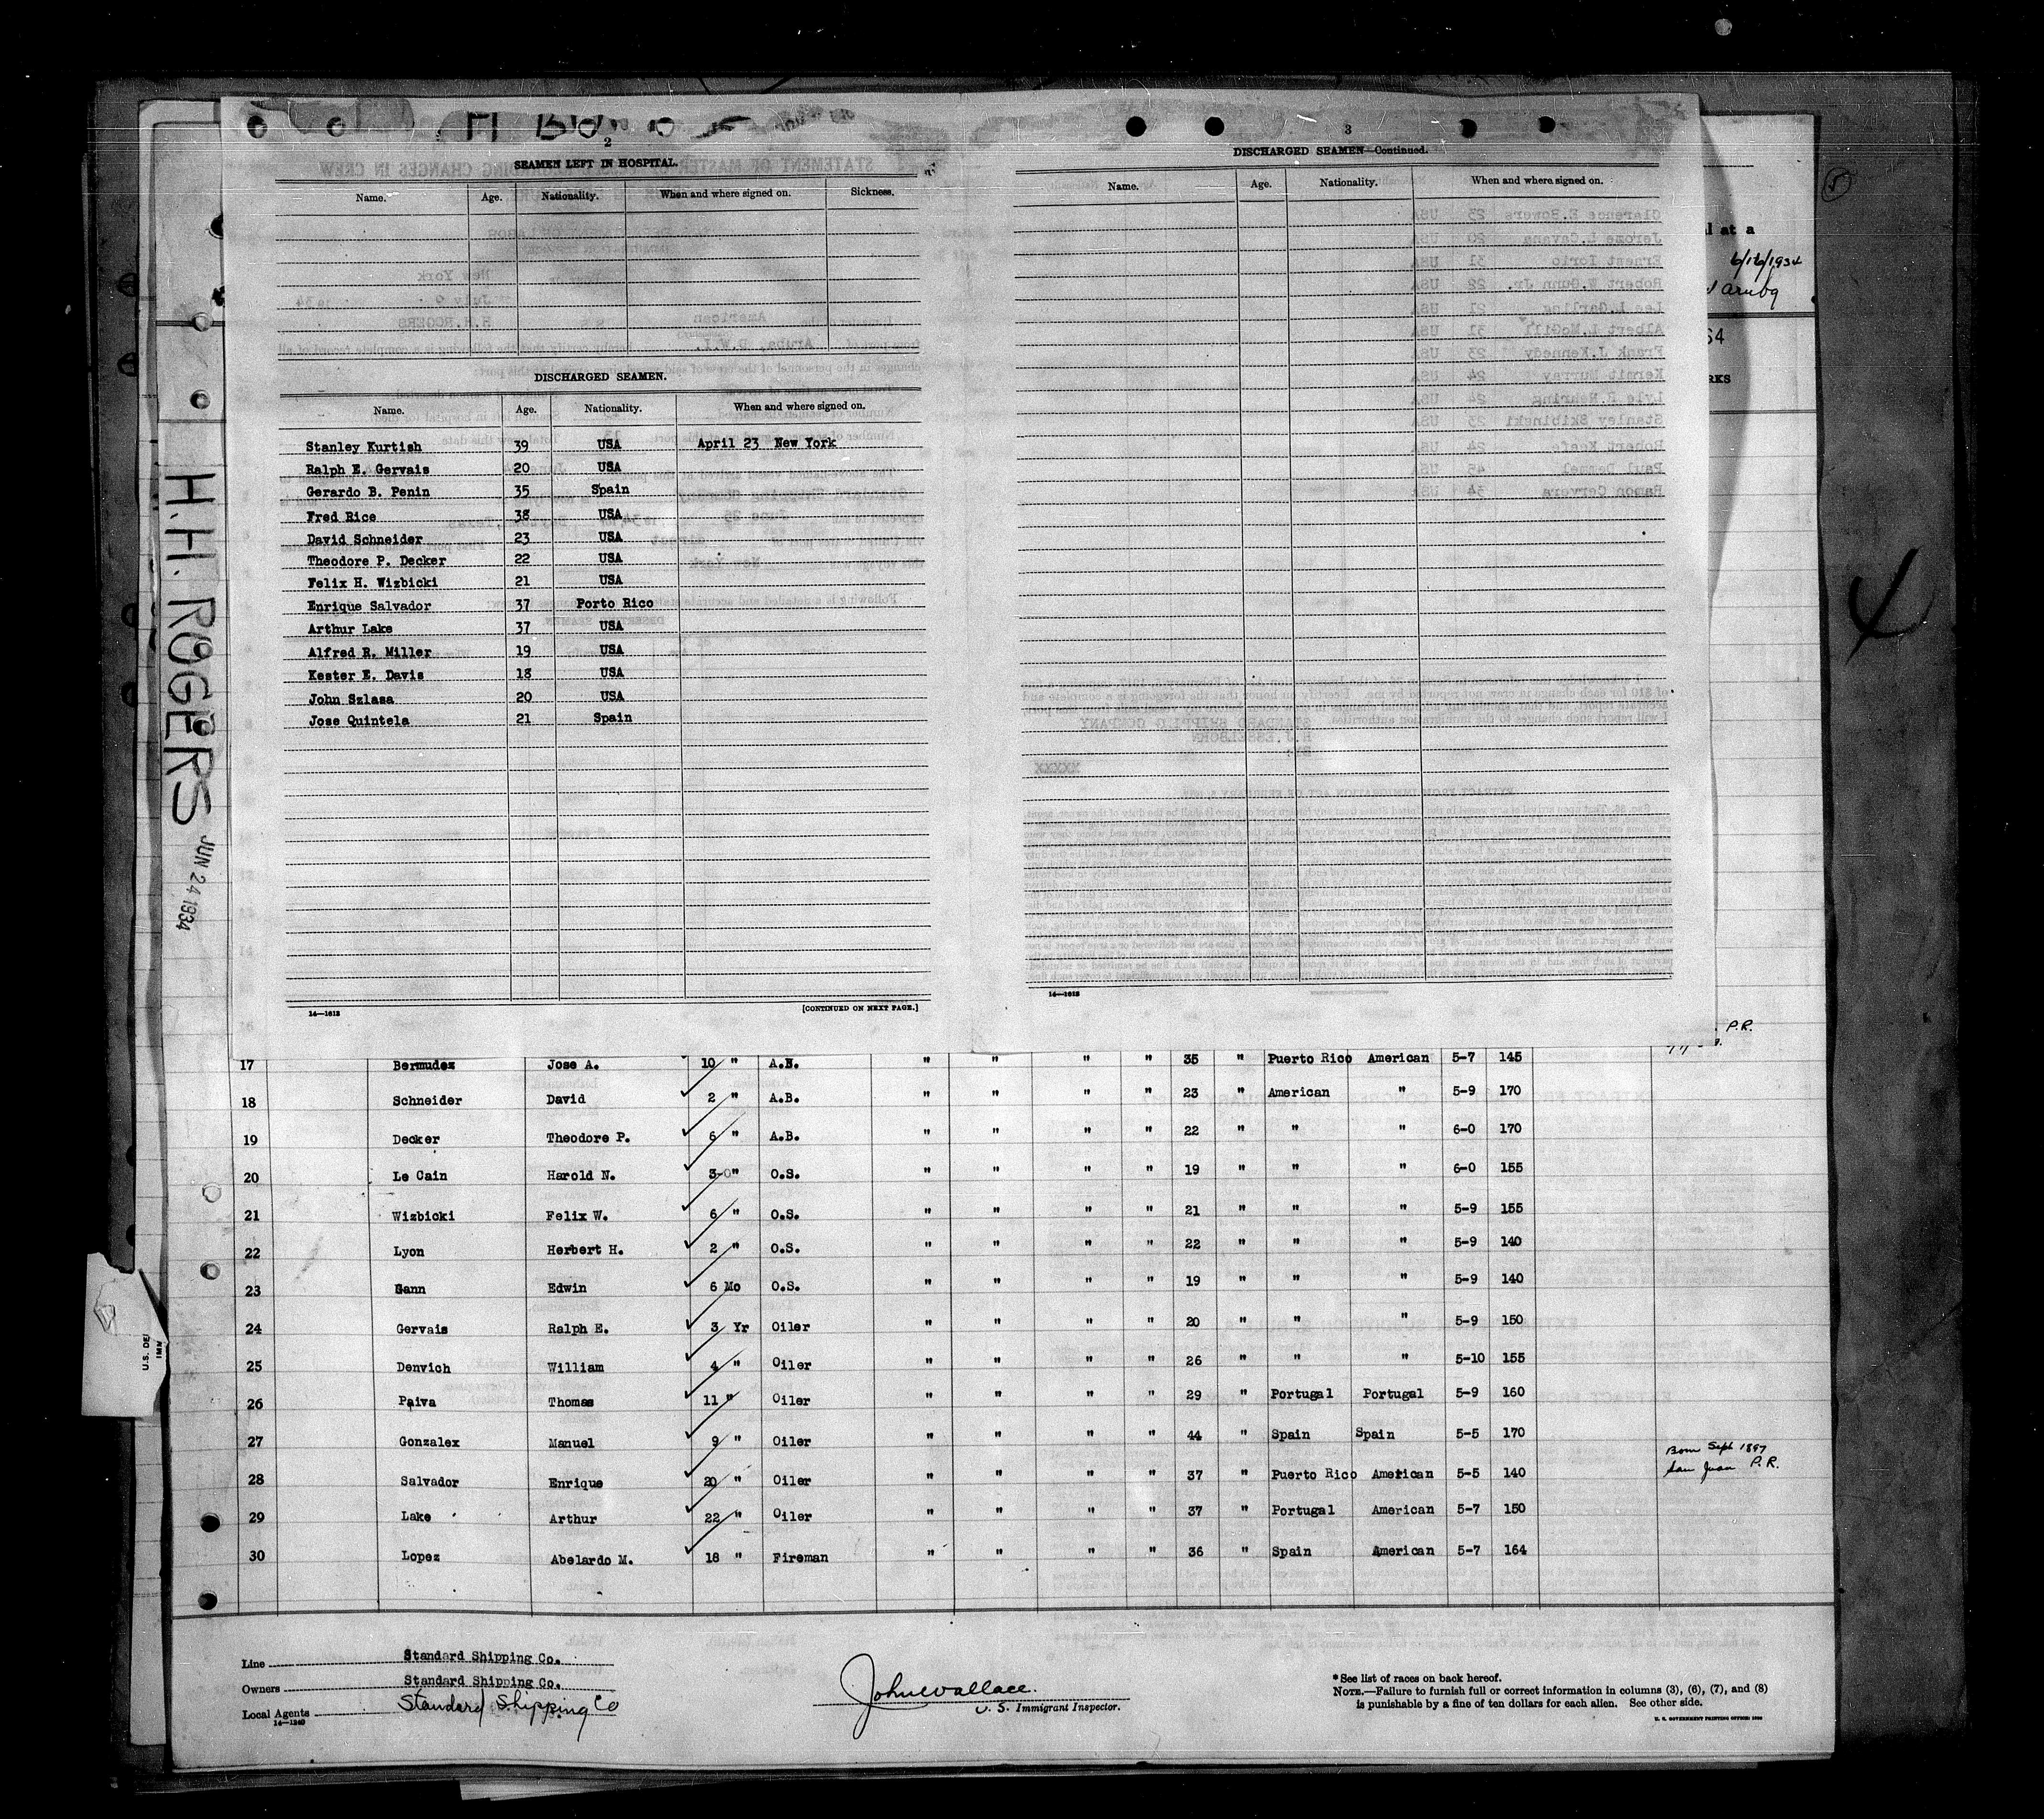 2
SEAMEN LEFT IN HOSPITAL.
Name. Age. Nationality. When and where signed on. Sickness.
DISCHARGED SEAMEN.
Name. Age. Nationality. When and where signed on.
Stanley Kurtish 39 USA April 23 New York
Ralph E. Gervais 20 USA
Gerardo B. Penin 35 Spain
Fred Rice 38 USA
David Schneider 23 USA
Theodore P. Decker 22 USA
Felix H. Wizbicki 21 USA
Enrique Salvador 37 Porto Rico
Arthur Lake 37 USA
Alfred R. Miller 19 USA
Kester E. Davis 18 USA
John Szlasa 20 USA
Jose Quintela 21 Spain
14—1613 [CONTINUED ON NEXT PAGE.]
3
DISCHARGED SEAMEN—Continued.
Name. Age. Nationality. When and where signed on.
14—1613
l at a
6/16/1934
Aruba
64
RKS
4
H.H. ROGERS JUN 24 1934
P.R.
17 Bermudez Jose A. 10 " A.B. " " " " 35 " Puerto Rico American 5-7 145
18 Schneider David 2 " A.B. " " " " 23 " American " 5-9 170
19 Decker Theodore P. 6 " A.B. " " " " 22 " " " 6-0 170
20 Le Cain Harold N. 3-0" O.S. " " " " 19 " " " 6-0 155
21 Wizbicki Felix W. 6 " O.S. " " " " 21 " " " 5-9 155
22 Lyon Herbert H. 2 " O.S. " " " " 22 " " " 5-9 140
23 Gann Edwin 6 Mo O.S. " " " " 19 " " " 5-9 140
24 Gervais Ralph E. 3 Yr Oiler " " " " 20 " " " 5-9 150
25 Denvich William 4 " Oiler " " " " 26 " " " 5-10 155
26 Paiva Thomas 11 " Oiler " " " " 29 " Portugal Portugal 5-9 160
27 Gonzalex Manuel 9 " Oiler " " " " 44 " Spain Spain 5-5 170
28 Salvador Enrique 20 " Oiler " " " " 37 " Puerto Rico American 5-5 140 Born Sept 1897 San Juan P.R.
29 Lake Arthur 22 " Oiler " " " " 37 " Portugal American 5-7 150
30 Lopez Abelardo M. 18 " Fireman " " " " 36 " Spain American 5-7 164
U.S. DE
IMM
Line Standard Shipping Co.
Owners Standard Shipping Co.
Local Agents Standard Shipping Co
14—1240
John Wallace.
U. S. Immigrant Inspector.
*See list of races on back hereof.
NOTE.—Failure to furnish full or correct information in columns (3), (6), (7), and (8)
is punishable by a fine of ten dollars for each alien. See other side.
U. S. GOVERNMENT PRINTING OFFICE: 1930